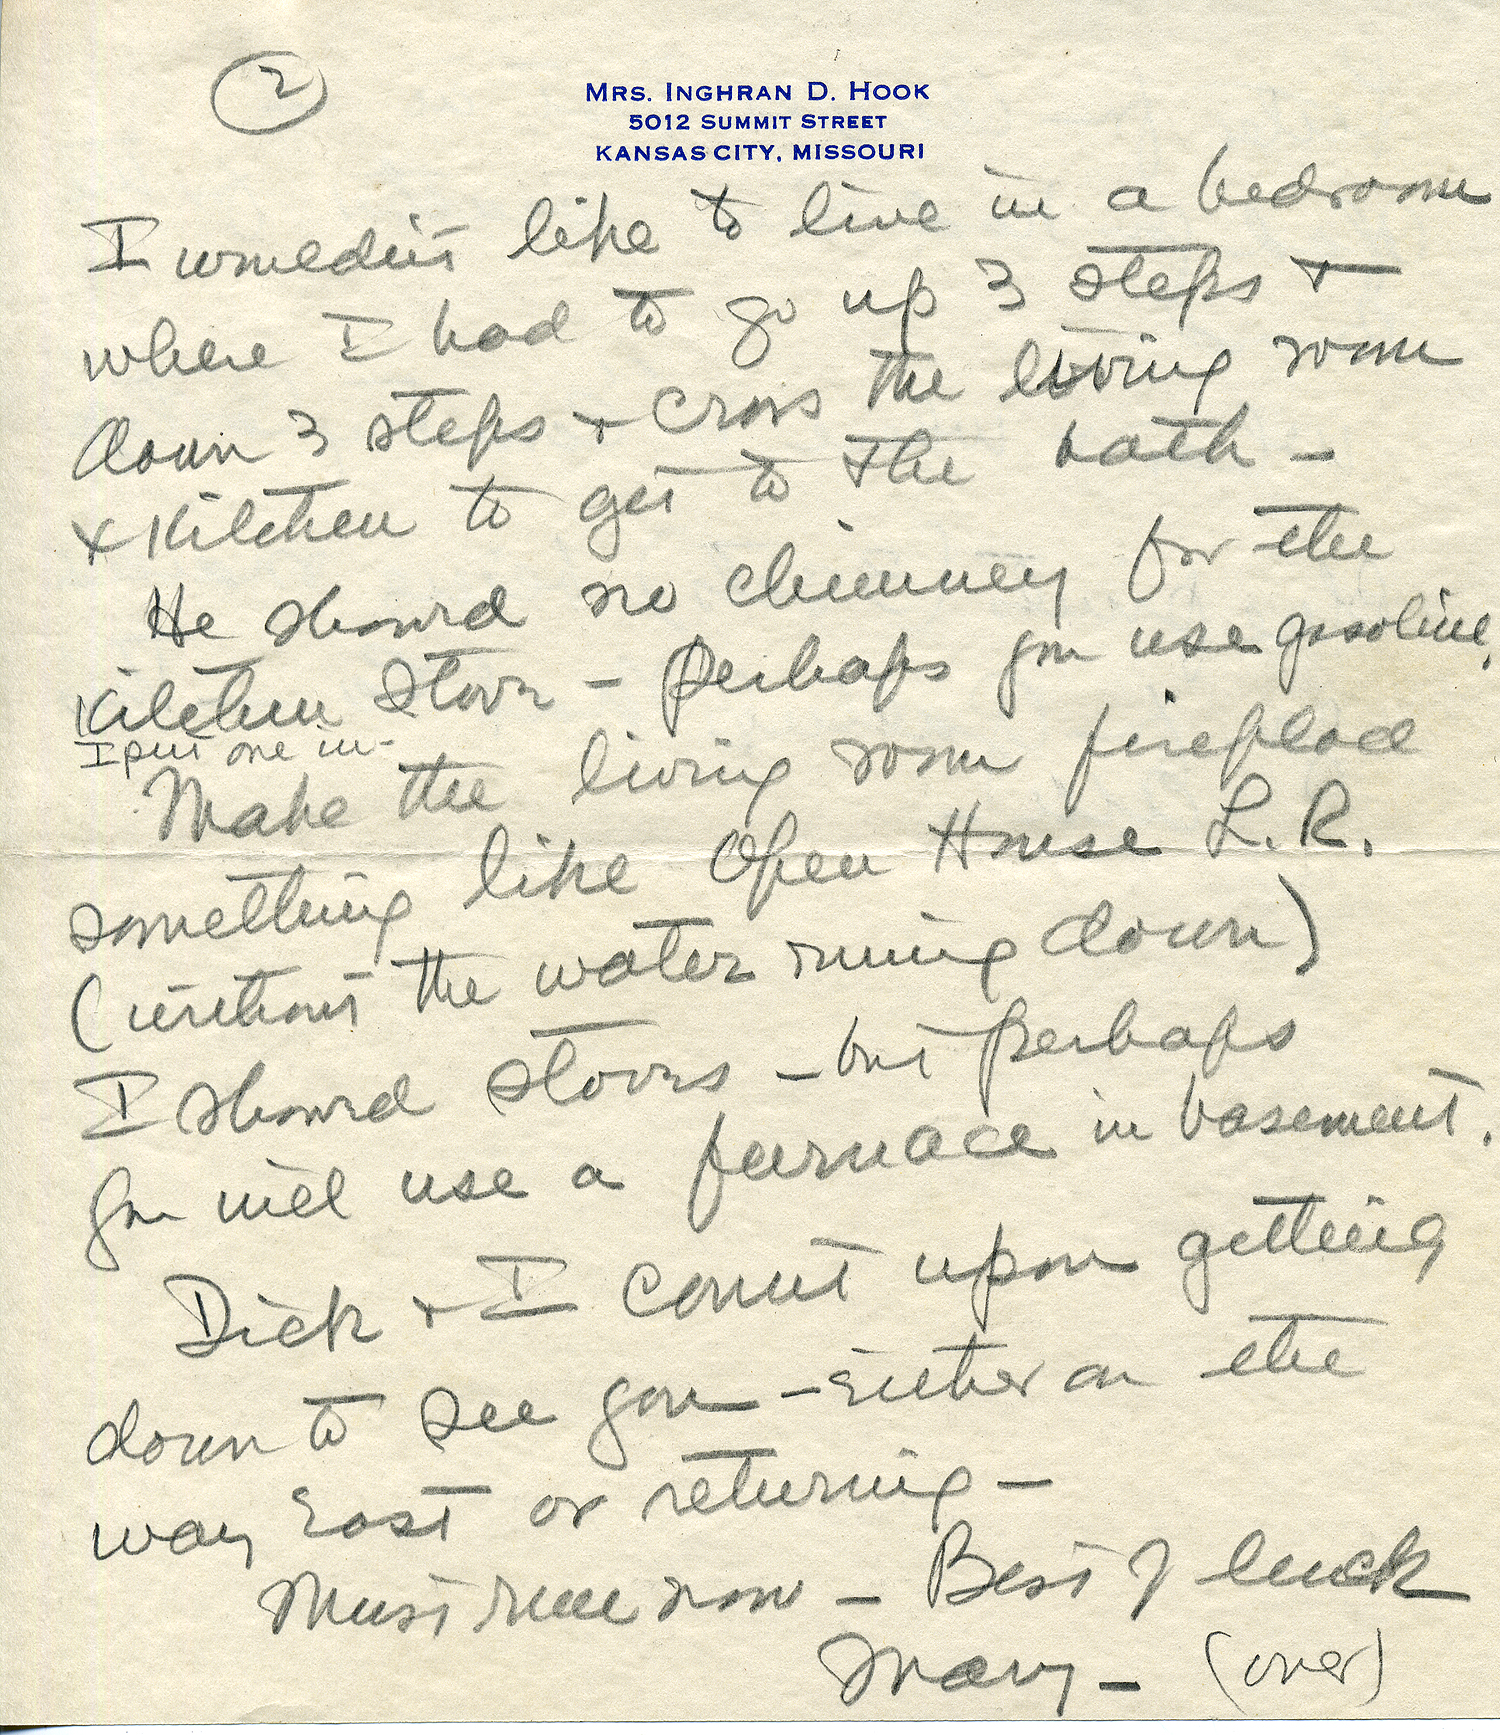 2
MRS. INGHRAN D. HOOK
5012 SUMMIT STREET
KANSAS CITY, MISSOURI
I wouldn't like to live in a bedroom
where I had to go up 3 steps &
down 3 steps & cross the living room
& Kitchen to get to the bath –
He showed no chimney for the
Kitchen Stove – Perhaps you use gasoline,
I put one in –
Make the living room fireplace
something like Open House L.R.
(without the water runing down)
I showed stoves – but perhaps
you will use a furnace in basement.
Dick & I count upon getting
down to see you – Either on the
way East or returning –
Must run now – Best of luck
Mary – (over)